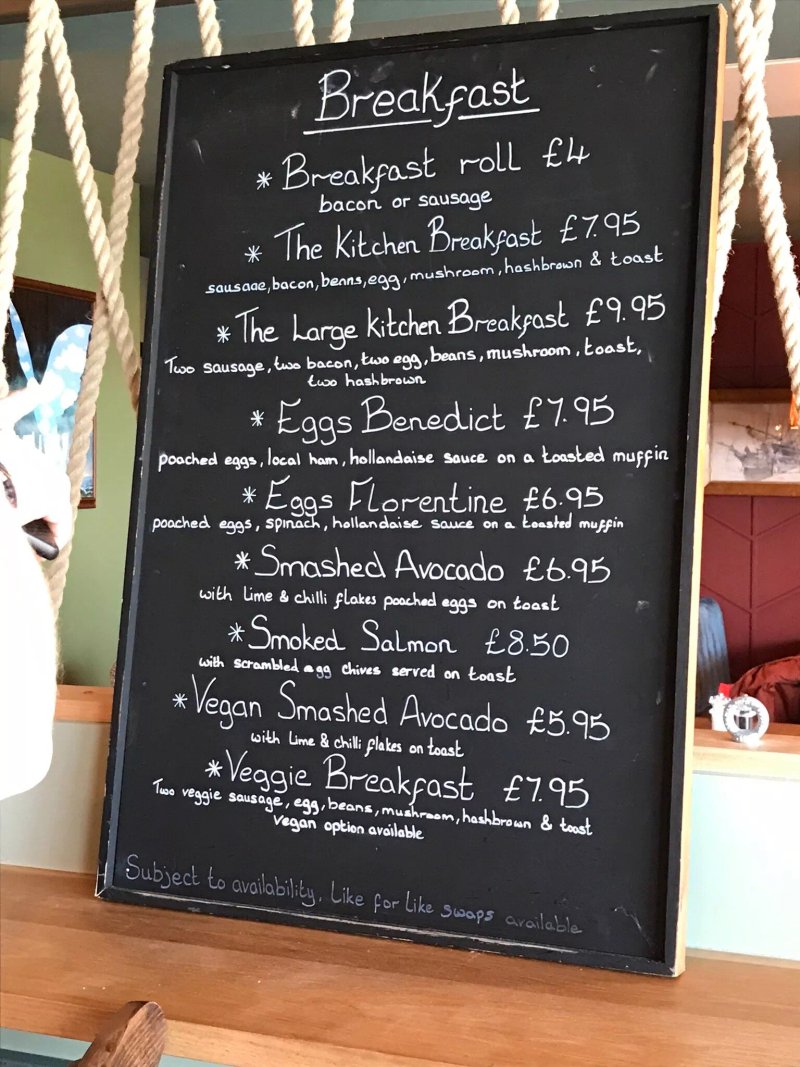 Breakfast
* Breakfast roll £4
bacon or sausage
* The Kitchen Breakfast £7.95
sausage, bacon, beans, egg, mushroom, hashbrown & toast
* The Large Kitchen Breakfast £9.95
Two sausage, two bacon, two egg, beans, mushroom, toast,
two hashbrown
* Eggs Benedict £7.95
poached eggs, local ham, hollandaise sauce on a toasted muffin
* Eggs Florentine £6.95
poached eggs, spinach, hollandaise sauce on a toasted muffin
* Smashed Avocado £6.95
with lime & chilli flakes poached eggs on toast
* Smoked Salmon £8.50
with scrambled egg chives served on toast
* Vegan Smashed Avocado £5.95
with lime & chilli flakes on toast
* Veggie Breakfast £7.95
Two veggie sausage, egg, beans, mushroom, hashbrown & toast
vegan option available
Subject to availability. Like for Like swaps available